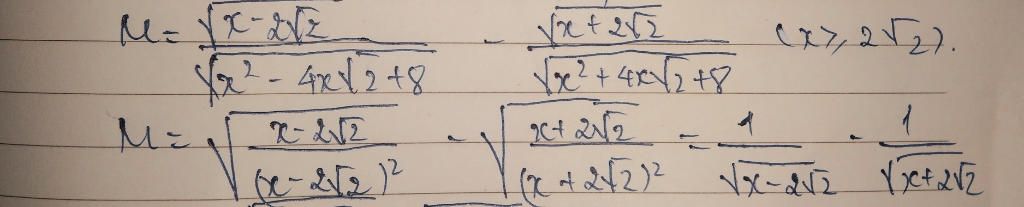 M = √(x-2√2) / √(x² - 4x√2 + 8) - √(x+2√2) / √(x² + 4x√2 + 8) (x ≥ 2√2).
M = √((x-2√2) / (x-2√2)²) - √((x+2√2) / (x+2√2)²) = 1 / √(x-2√2) - 1 / √(x+2√2)